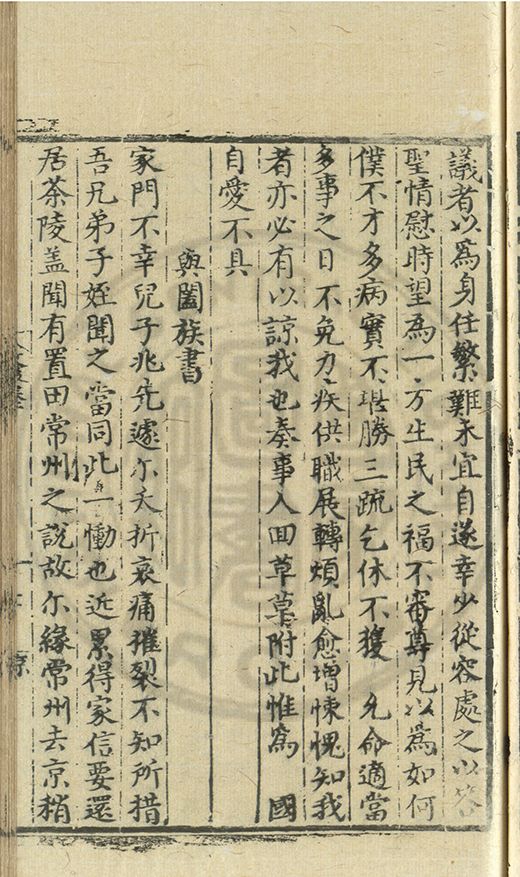 議者以為身任繁難未宜自遂幸少從容處之以答
聖情慰時望為一方生民之福不審尊見以為如何
僕不才多病實不堪勝三疏乞休不獲 允命適當
多事之日不免力疾供職展轉煩亂愈增悚愧知我
者亦必有以諒我也奏事人回草草附此惟為 國
自愛不具
與闔族書
家門不幸兒子兆先遽尒夭折哀痛摧裂不知所措
吾兄弟子姪聞之當同此一慟也近累得家信要還
居茶陵盖聞有置田常州之說故尒緣常州去京稍